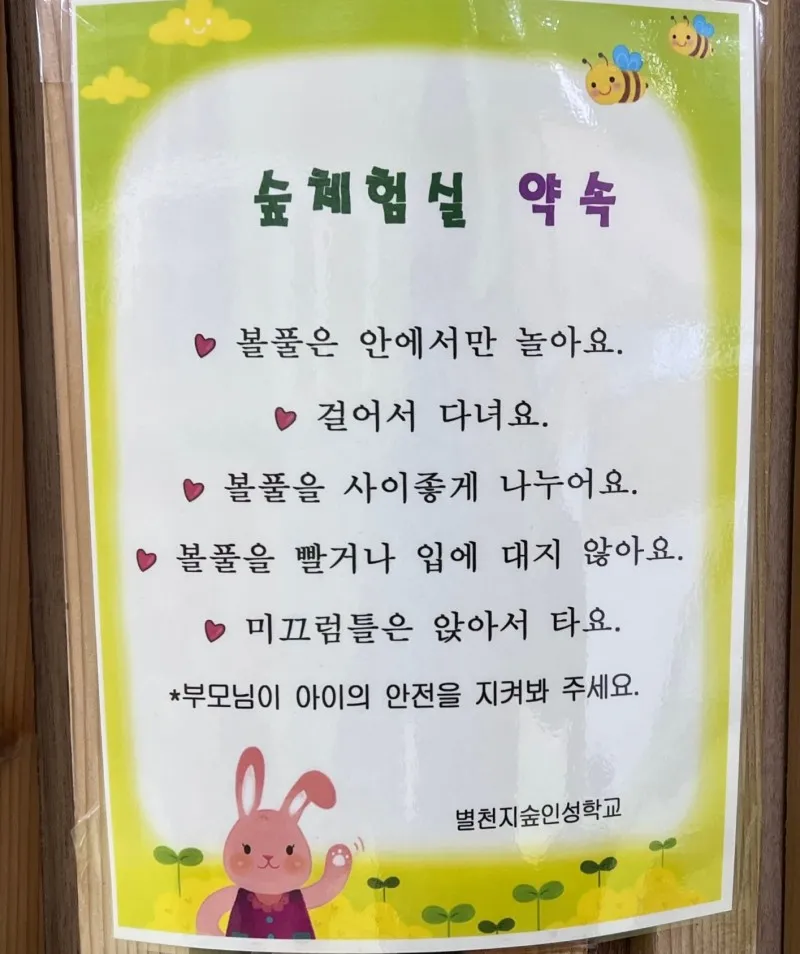 숲체험실 약속
♥ 볼풀은 안에서만 놀아요.
♥ 걸어서 다녀요.
♥ 볼풀을 사이좋게 나누어요.
♥ 볼풀을 빨거나 입에 대지 않아요.
♥ 미끄럼틀은 앉아서 타요.
*부모님이 아이의 안전을 지켜봐 주세요.
별천지숲인성학교